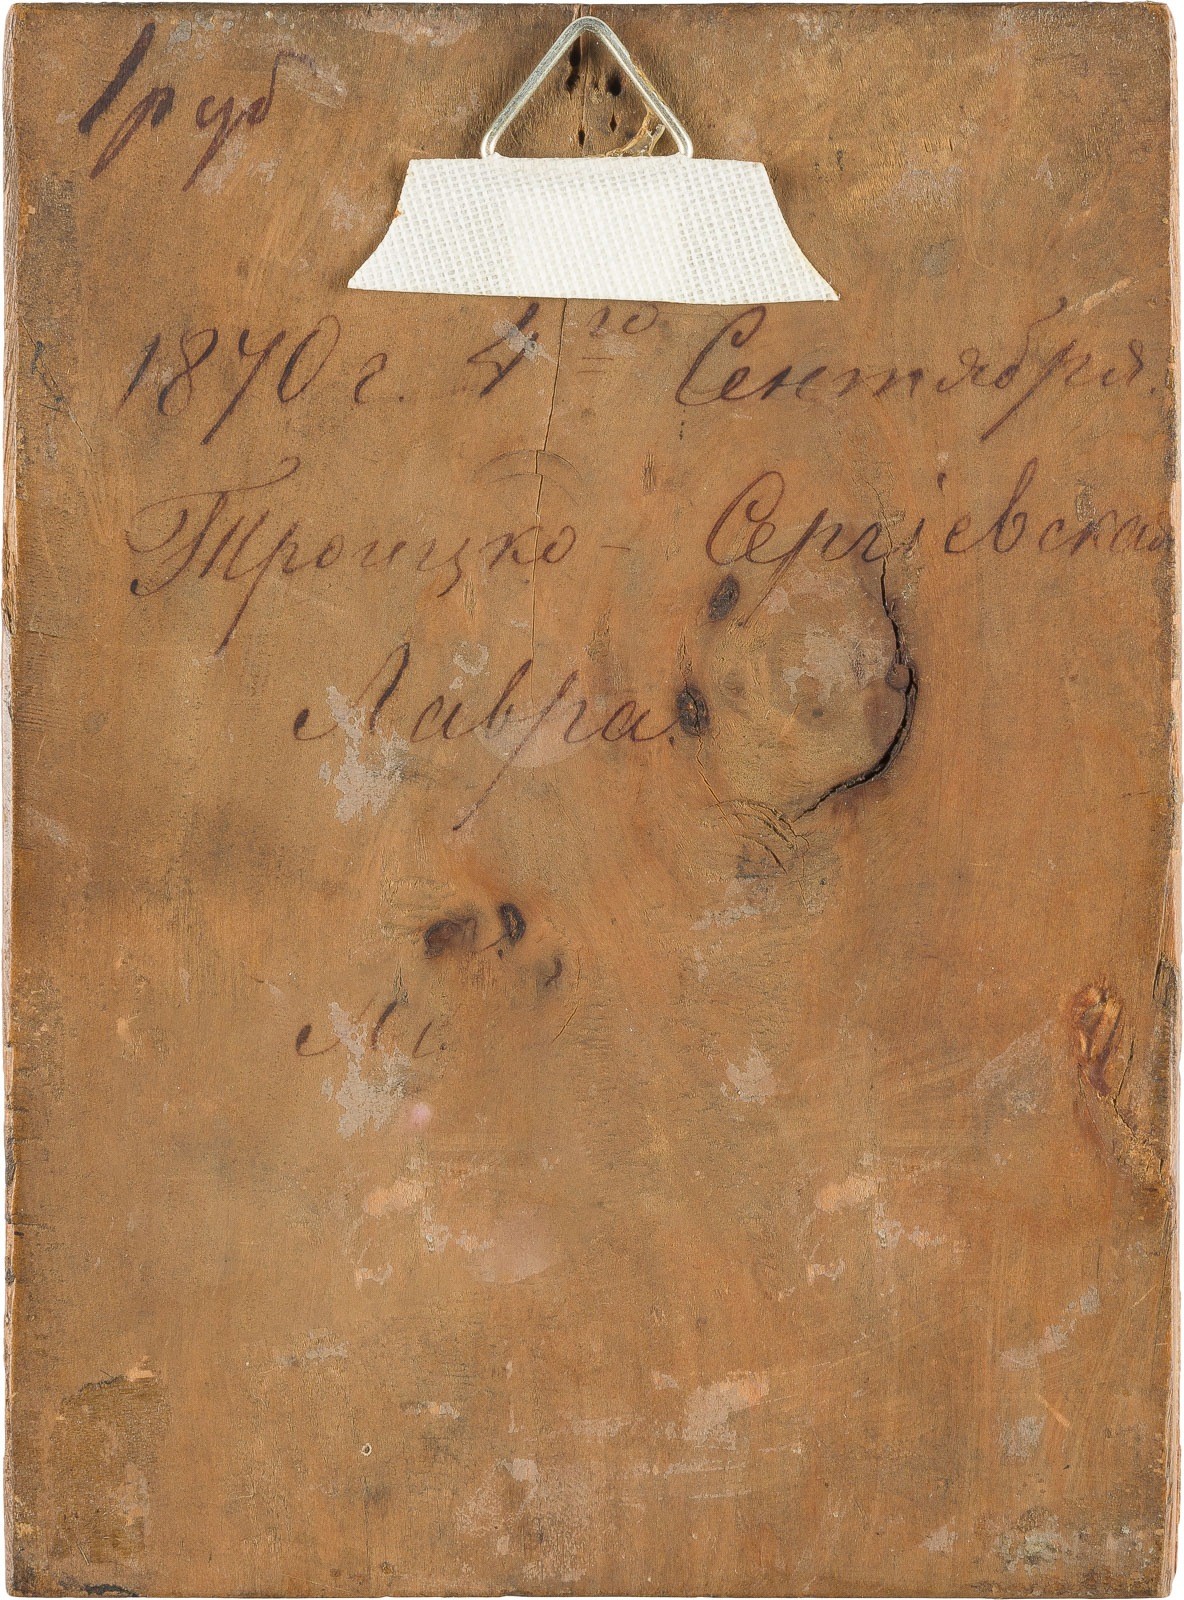 1 руб
1870 г. 4го Сентября.
Троицко-Сергіевская
Лавра.